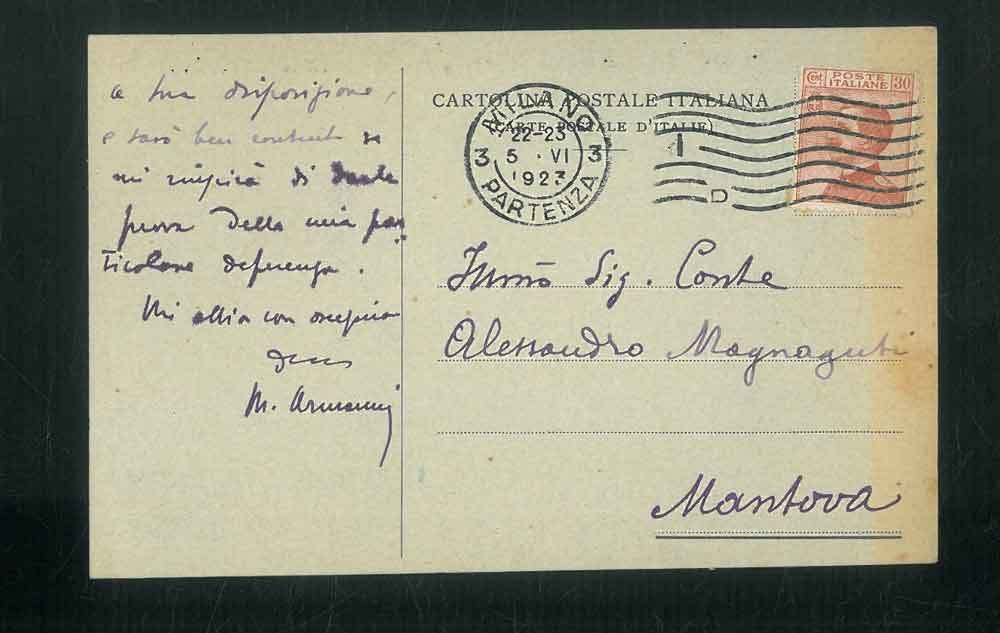 a sua disposizione,
e sarò ben contento se
mi riuscirà di darle
prova della mia par
ticolare deferenza.
Mi abbia con
M. Armanni
CARTOLINA POSTALE ITALIANA
(CARTE POSTALE D'ITALIE)
MILANO
22-23
3 5 · VI 3
1923
PARTENZA
D
Cent POSTE ITALIANE 30
Illmo Sig. Conte
Alessandro Magnaguti
Mantova